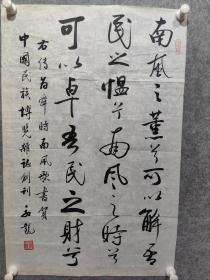 南風之薰兮可以解吾
民之愠兮南風之時兮
可以阜吾民之財兮
右傳为舜時南風歌書賀
中國民族博览雜誌創刊